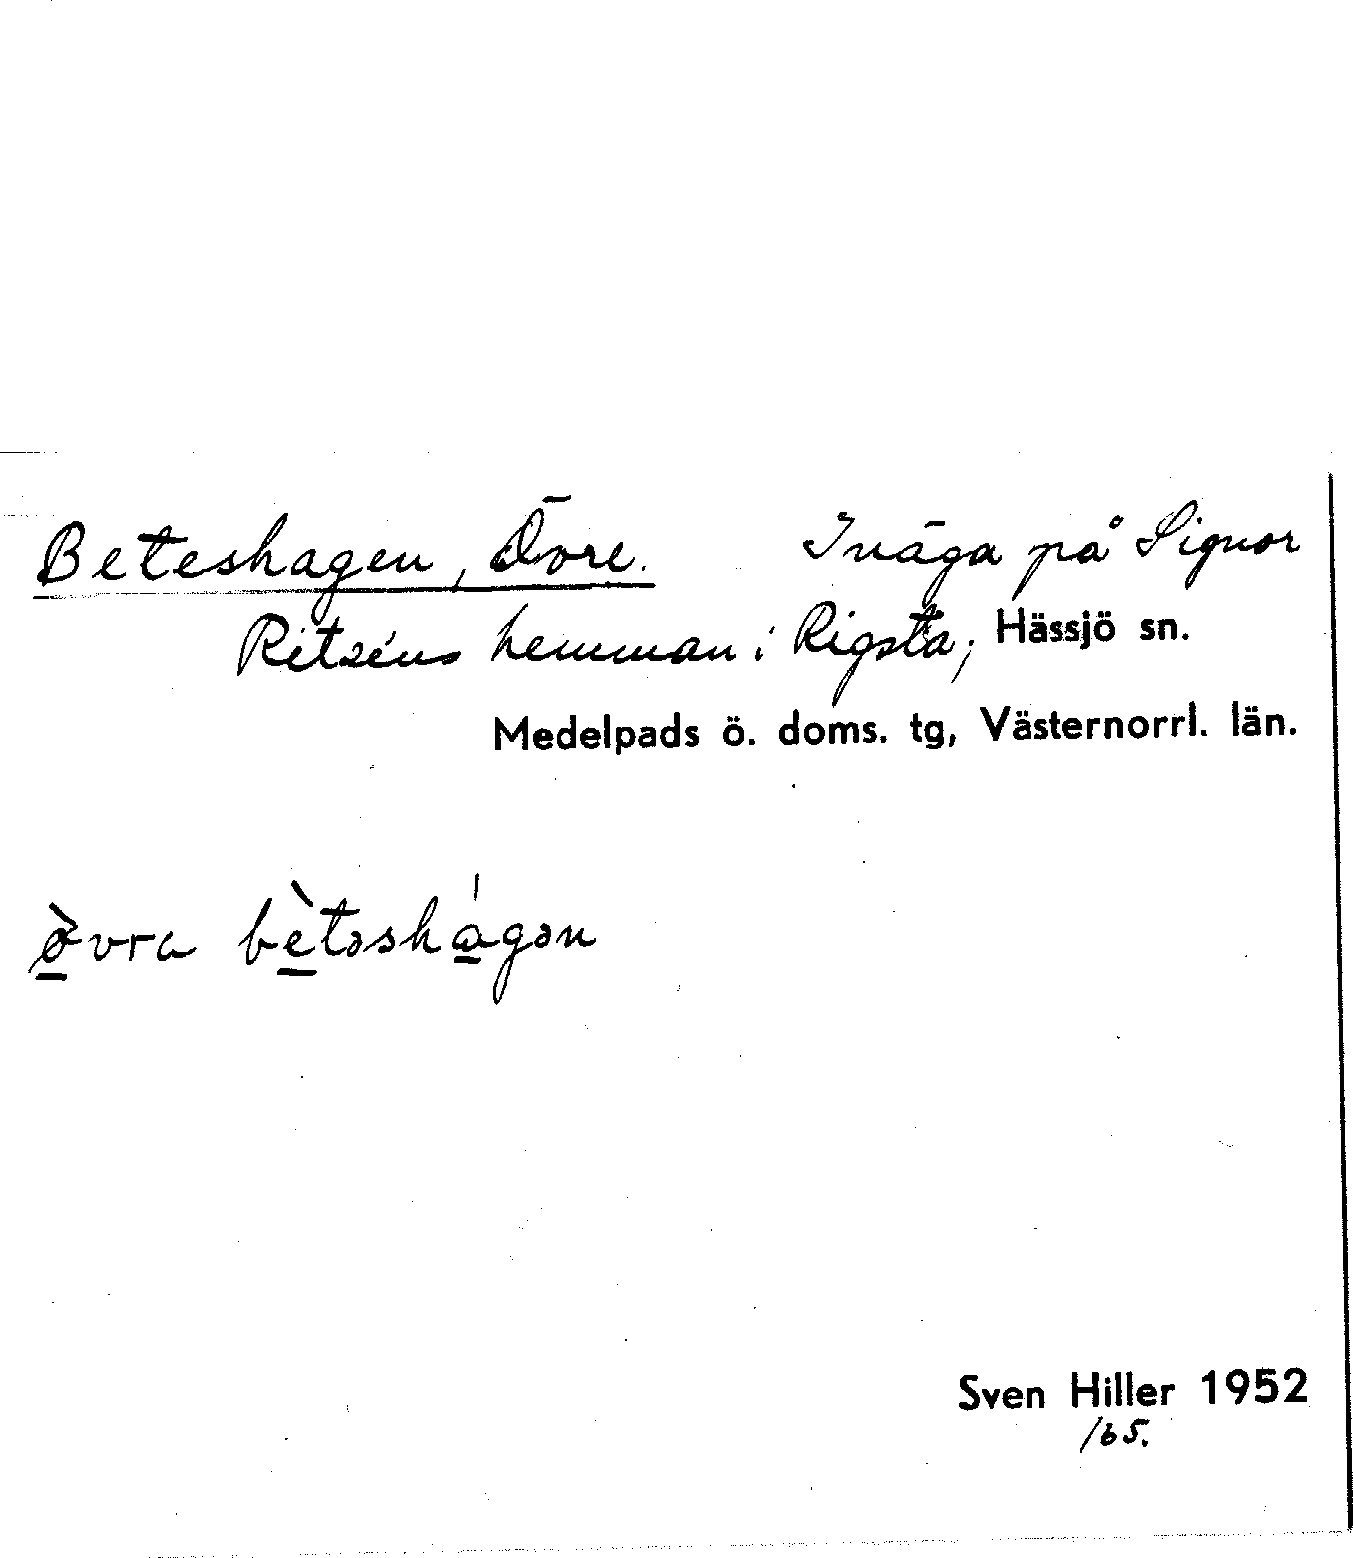 Beteshagen, Övre. Inäga på Signor
Ritséns hemman i Rigsta, Hässjö sn.
Medelpads ö. doms. tg, Västernorrl. län.
ø̱̀vra bè̱təshá̱gən
Sven Hiller 1952
/65.